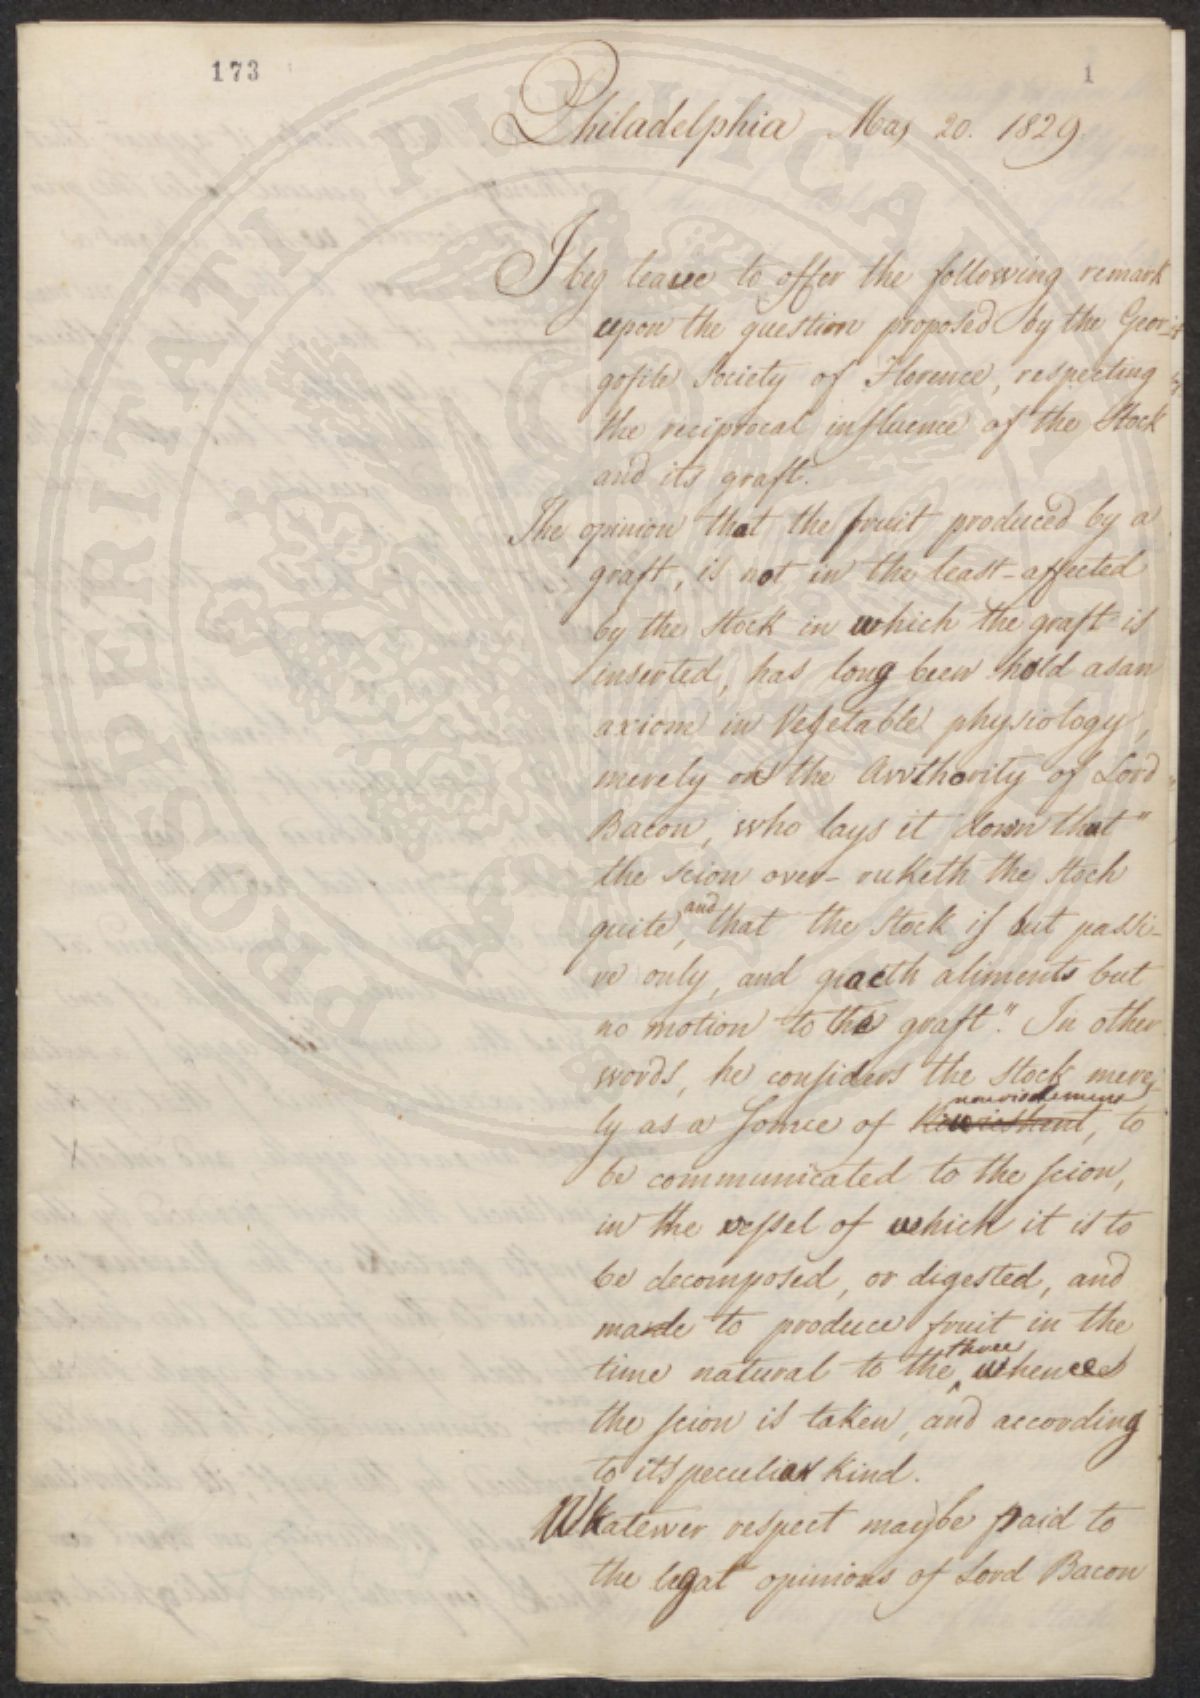 173
1
Philadelphia May 20. 1829
I beg leave to offer the following remark
upon the question proposed by the Geor-
gofile Society of Florence, respecting
the reciprocal influence of the Stock
and its graft.
The opinion that the fruit produced by a
graft, is not in the least affected
by the Stock in which the graft is
inserted, has long been hold as an
axiom in Vegetable physiology,
merely on the Avvthority of Lord
Bacon, who lays it down that "
the scion over-ruketh the Stoch
quite, and that the Stock is but passi-
ve only, and giaeth aliments but
no motion to the graft". In other
words, he considers the Stock mere-
ly as a Source of nourishement, to
be communicated to the scion,
in the vessel of which it is to
be decomposed, or digested, and
made to produce fruit in the
time natural to the three whence
the scion is taken, and according
to its peculiar kind.
Whatewer respect may be paid to
the legal opinions of Lord Bacon
PROSPERITATI PUBLICAE